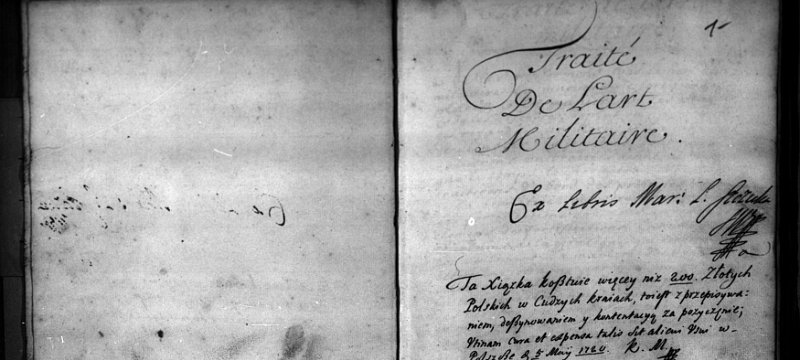 1
Traité
De L'art
Militaire.
Ex Libris Mar: L.
Ta Xiązka kosztuie więcey niż 200. Złotych
Polskich w Cudzych kraiach, toiest z przepisywa=
niem, desynowaniem y kontentacyą za pozyczenie;
Utinam cura et expensa talis sit alieni Usui w
Polszcze d 5 Maij 1720. K. M.